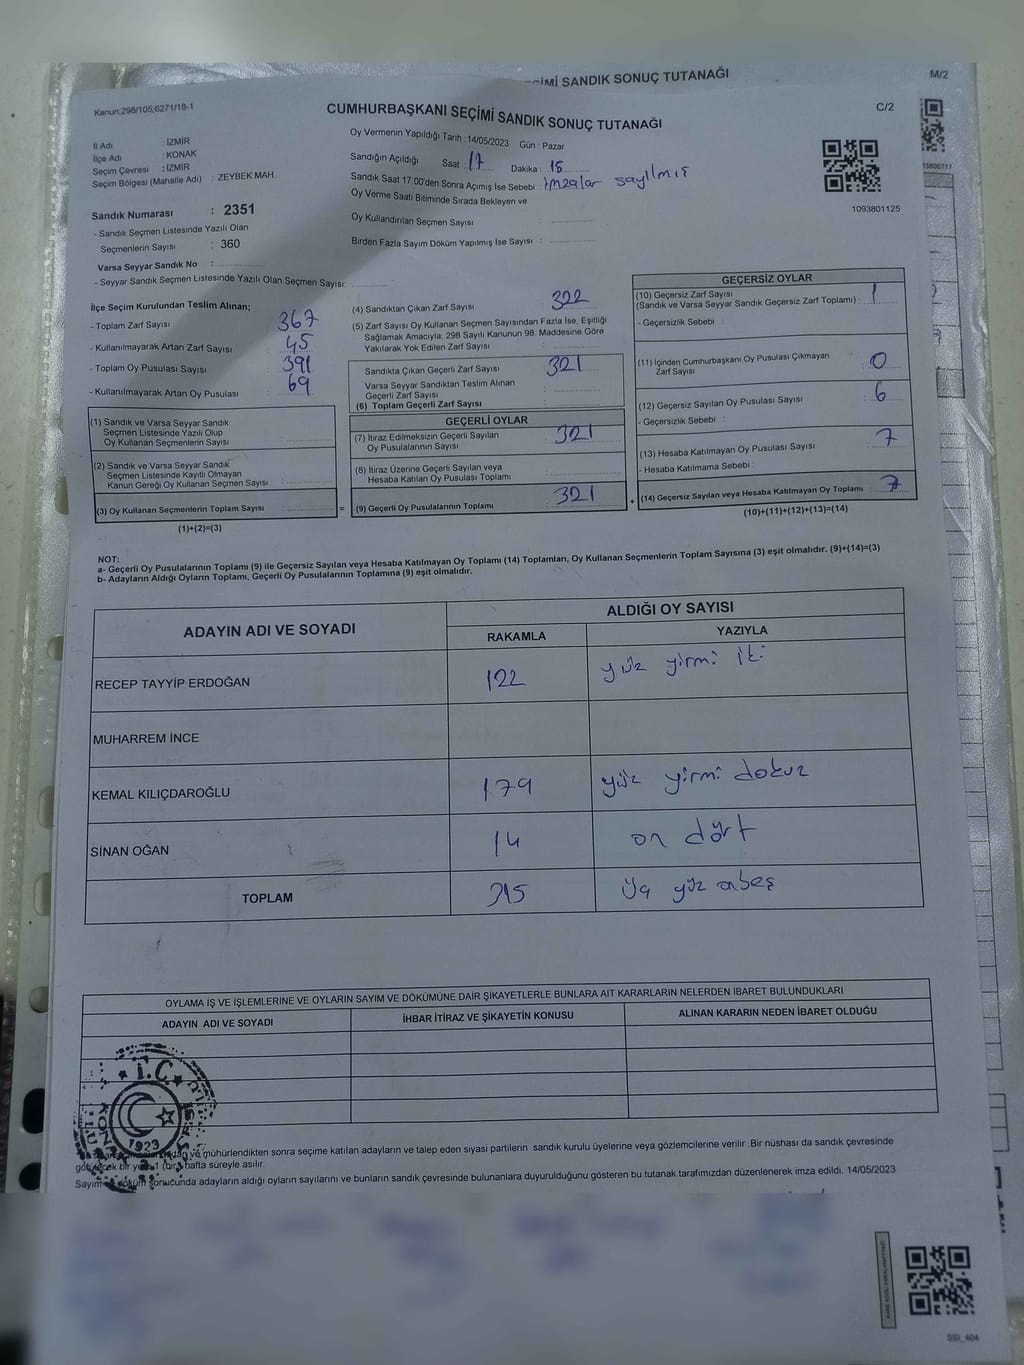 CİMİ SANDIK SONUÇ TUTANAĞI
M/2
Kanun:298/105;6271/18-1
CUMHURBAŞKANI SEÇİMİ SANDIK SONUÇ TUTANAĞI
C/2
İl Adı : İZMİR
İlçe Adı : KONAK
Seçim Çevresi : İZMİR
Seçim Bölgesi (Mahalle Adı) : ZEYBEK MAH.
Oy Vermenin Yapıldığı Tarih :14/05/2023 Gün : Pazar
Sandığın Açıldığı Saat 17 Dakika 15
Sandık Saat 17.00'den Sonra Açımış İse Sebebi : imzalar sayılmış
Oy Verme Saati Bitiminde Sırada Bekleyen ve
Oy Kullandırılan Seçmen Sayısı :
Birden Fazla Sayım Döküm Yapılmış İse Sayısı :
1093801125
Sandık Numarası : 2351
- Sandık Seçmen Listesinde Yazılı Olan
Seçmenlerin Sayısı : 360
Varsa Seyyar Sandık No :
- Seyyar Sandık Seçmen Listesinde Yazılı Olan Seçmen Sayısı:
İlçe Seçim Kurulundan Teslim Alınan;
- Toplam Zarf Sayısı 367
- Kullanılmayarak Artan Zarf Sayısı 45
- Toplam Oy Pusulası Sayısı 391
- Kullanılmayarak Artan Oy Pusulası 69
(1) Sandık ve Varsa Seyyar Sandık
Seçmen Listesinde Yazılı Olup
Oy Kullanan Seçmenlerin Sayısı :
(2) Sandık ve Varsa Seyyar Sandık
Seçmen Listesinde Kayıtlı Olmayan
Kanun Gereği Oy Kullanan Seçmen Sayısı :
(3) Oy Kullanan Seçmenlerin Toplam Sayısı : =
(1)+(2)=(3)
(4) Sandıktan Çıkan Zarf Sayısı 322
(5) Zarf Sayısı Oy Kullanan Seçmen Sayısından Fazla İse, Eşitliği
Sağlamak Amacıyla; 298 Sayılı Kanunun 98. Maddesine Göre
Yakılarak Yok Edilen Zarf Sayısı
Sandıkta Çıkan Geçerli Zarf Sayısı 321
Varsa Seyyar Sandıktan Teslim Alınan
Geçerli Zarf Sayısı
(6) Toplam Geçerli Zarf Sayısı
GEÇERLİ OYLAR
(7) İtiraz Edilmeksizin Geçerli Sayılan
Oy Pusulalarının Sayısı 321
(8) İtiraz Üzerine Geçerli Sayılan veya
Hesaba Katılan Oy Pusulası Toplamı
(9) Geçerli Oy Pusulalarının Toplamı 321 +
GEÇERSİZ OYLAR
(10) Geçersiz Zarf Sayısı
(Sandık ve Varsa Seyyar Sandık Geçersiz Zarf Toplamı) : 1
- Geçersizlik Sebebi :
(11) İçinden Cumhurbaşkanı Oy Pusulası Çıkmayan
Zarf Sayısı 0
(12) Geçersiz Sayılan Oy Pusulası Sayısı 6
- Geçersizlik Sebebi :
(13) Hesaba Katılmayan Oy Pusulası Sayısı 7
- Hesaba Katılmama Sebebi :
(14) Geçersiz Sayılan veya Hesaba Katılmayan Oy Toplamı 7
(10)+(11)+(12)+(13)=(14)
NOT:
a- Geçerli Oy Pusulalarının Toplamı (9) ile Geçersiz Sayılan veya Hesaba Katılmayan Oy Toplamı (14) Toplamları, Oy Kullanan Seçmenlerin Toplam Sayısına (3) eşit olmalıdır. (9)+(14)=(3)
b- Adayların Aldığı Oyların Toplamı, Geçerli Oy Pusulalarının Toplamına (9) eşit olmalıdır.
ADAYIN ADI VE SOYADI ALDIĞI OY SAYISI
RAKAMLA YAZIYLA
RECEP TAYYİP ERDOĞAN 122 yüz yirmi iki
MUHARREM İNCE
KEMAL KILIÇDAROĞLU 179 yüz yirmi dokuz
SİNAN OĞAN 14 on dört
TOPLAM 315 üç yüz onbeş
OYLAMA İŞ VE İŞLEMLERİNE VE OYLARIN SAYIM VE DÖKÜMÜNE DAİR ŞİKAYETLERLE BUNLARA AİT KARARLARIN NELERDEN İBARET BULUNDUKLARI
ADAYIN ADI VE SOYADI İHBAR İTİRAZ VE ŞİKAYETİN KONUSU ALINAN KARARIN NEDEN İBARET OLDUĞU
T.C.
1923
ve mühürlendikten sonra seçime katılan adayların ve talep eden siyasi partilerin sandık kurulu üyelerine veya gözlemcilerine verilir Bir nüshası da sandık çevresinde
bir yere 1 (bir) hafta süreyle asılır.
Sayım ve döküm sonucunda adayların aldığı oyların sayılarını ve bunların sandık çevresinde bulunanlara duyurulduğunu gösteren bu tutanak tarafımızdan düzenlenerek imza edildi. 14/05/2023
SSI_404